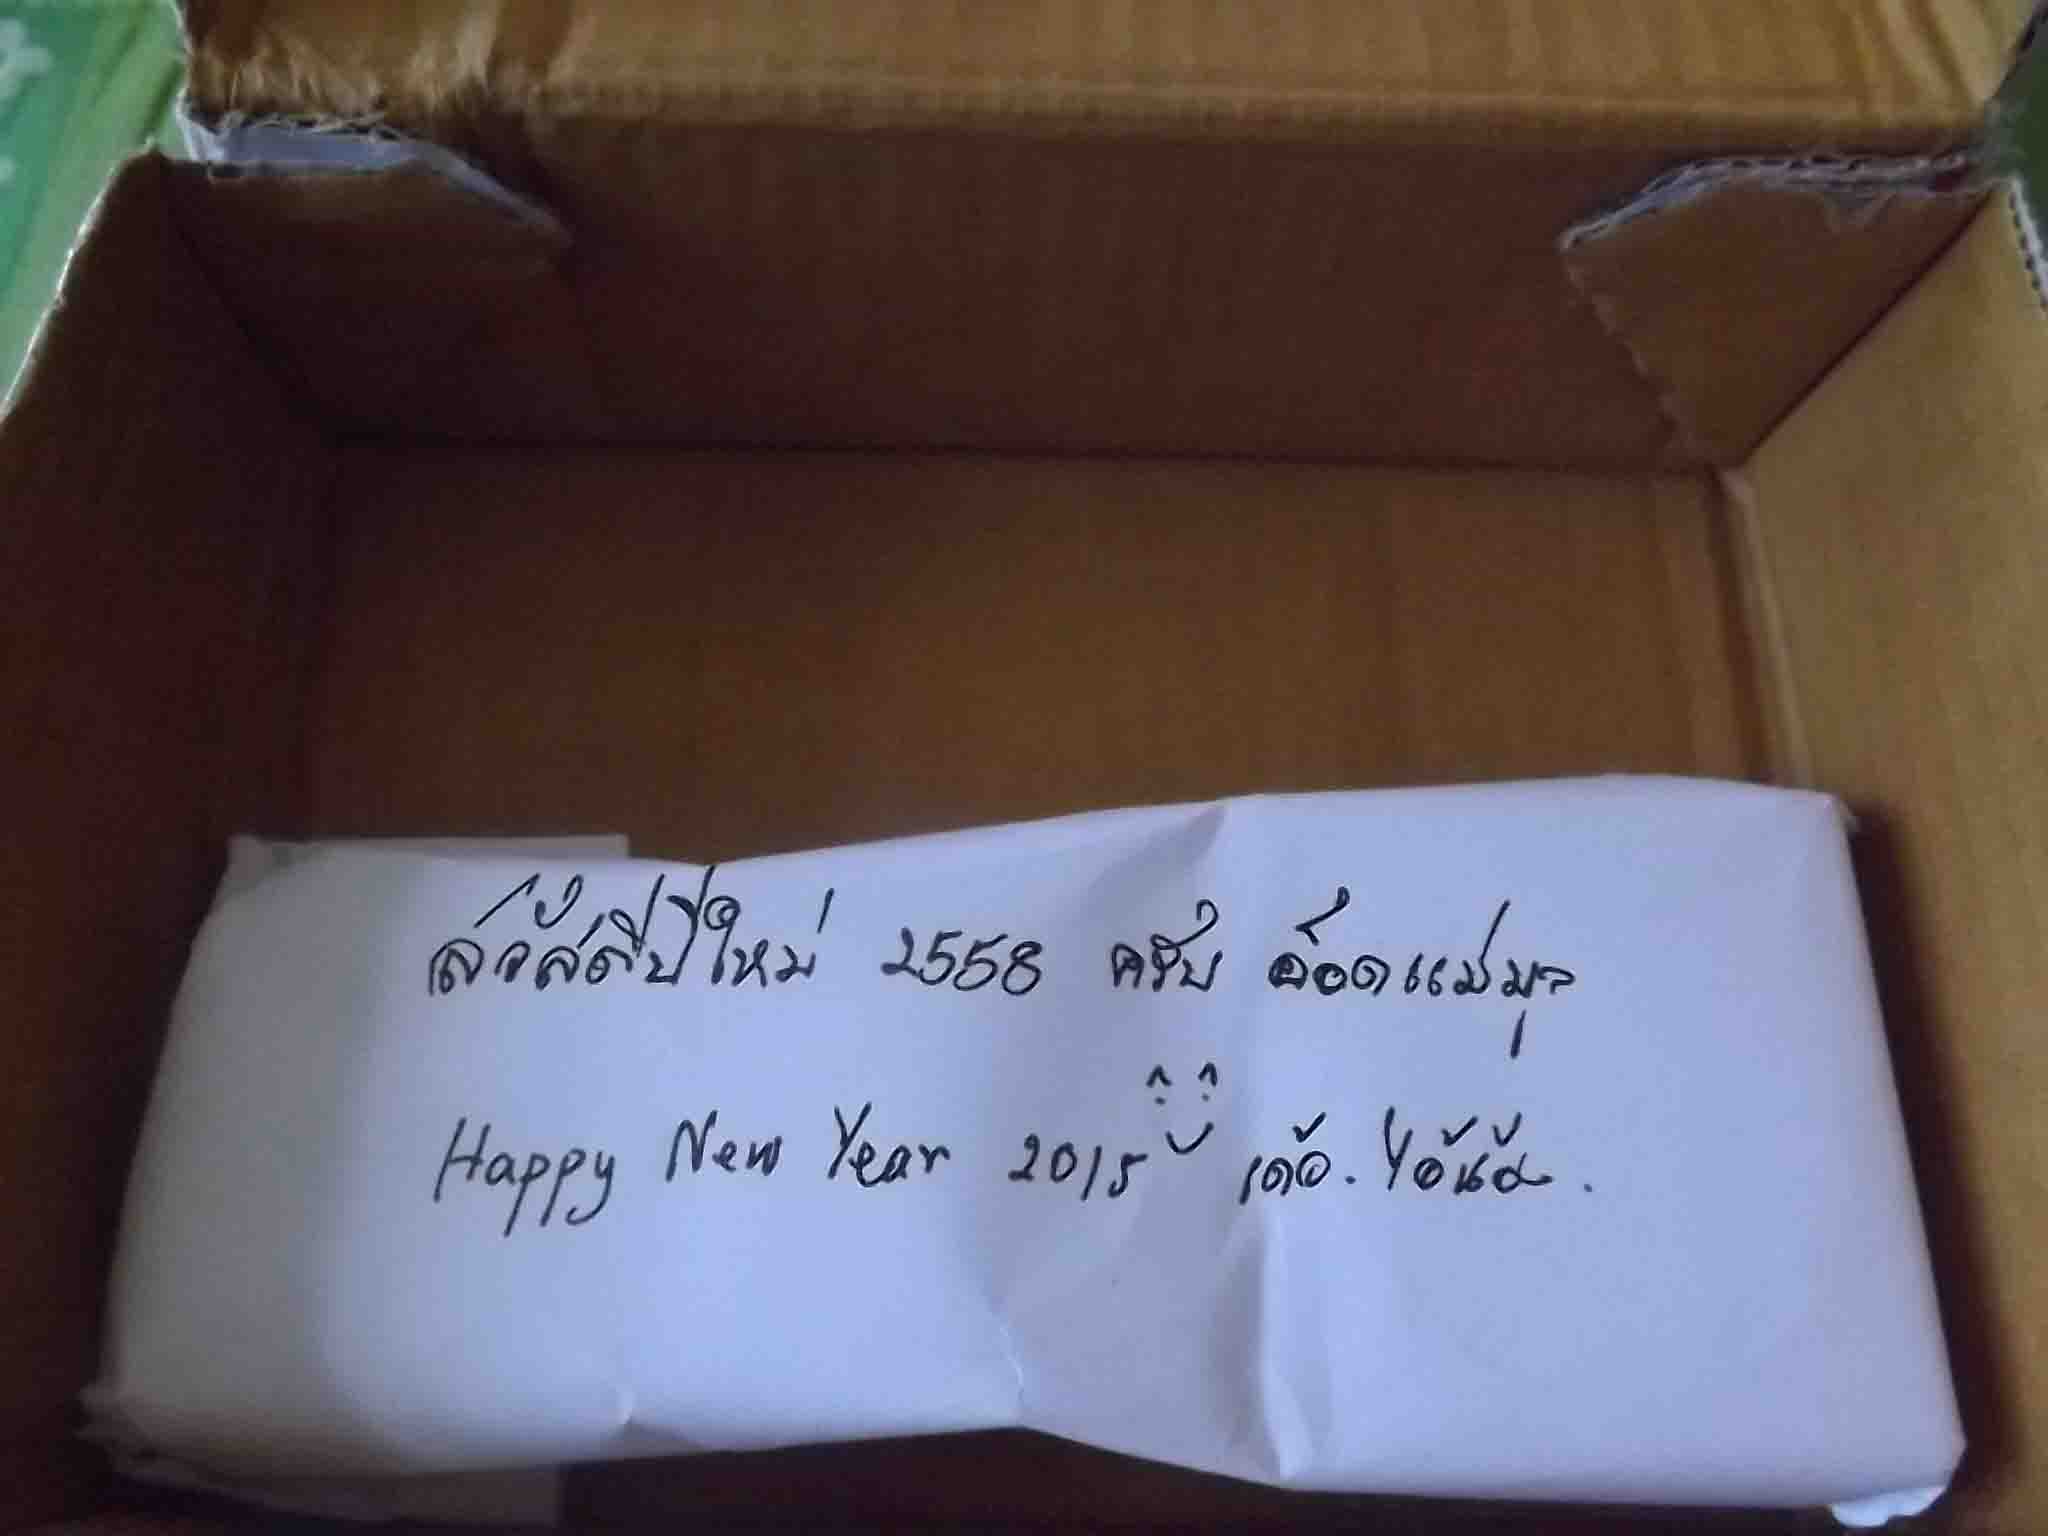 สวัสดีปีใหม่ 2558 ครับ อ๊อดแม่มูล
Happy New Year 2015 เด้อ.